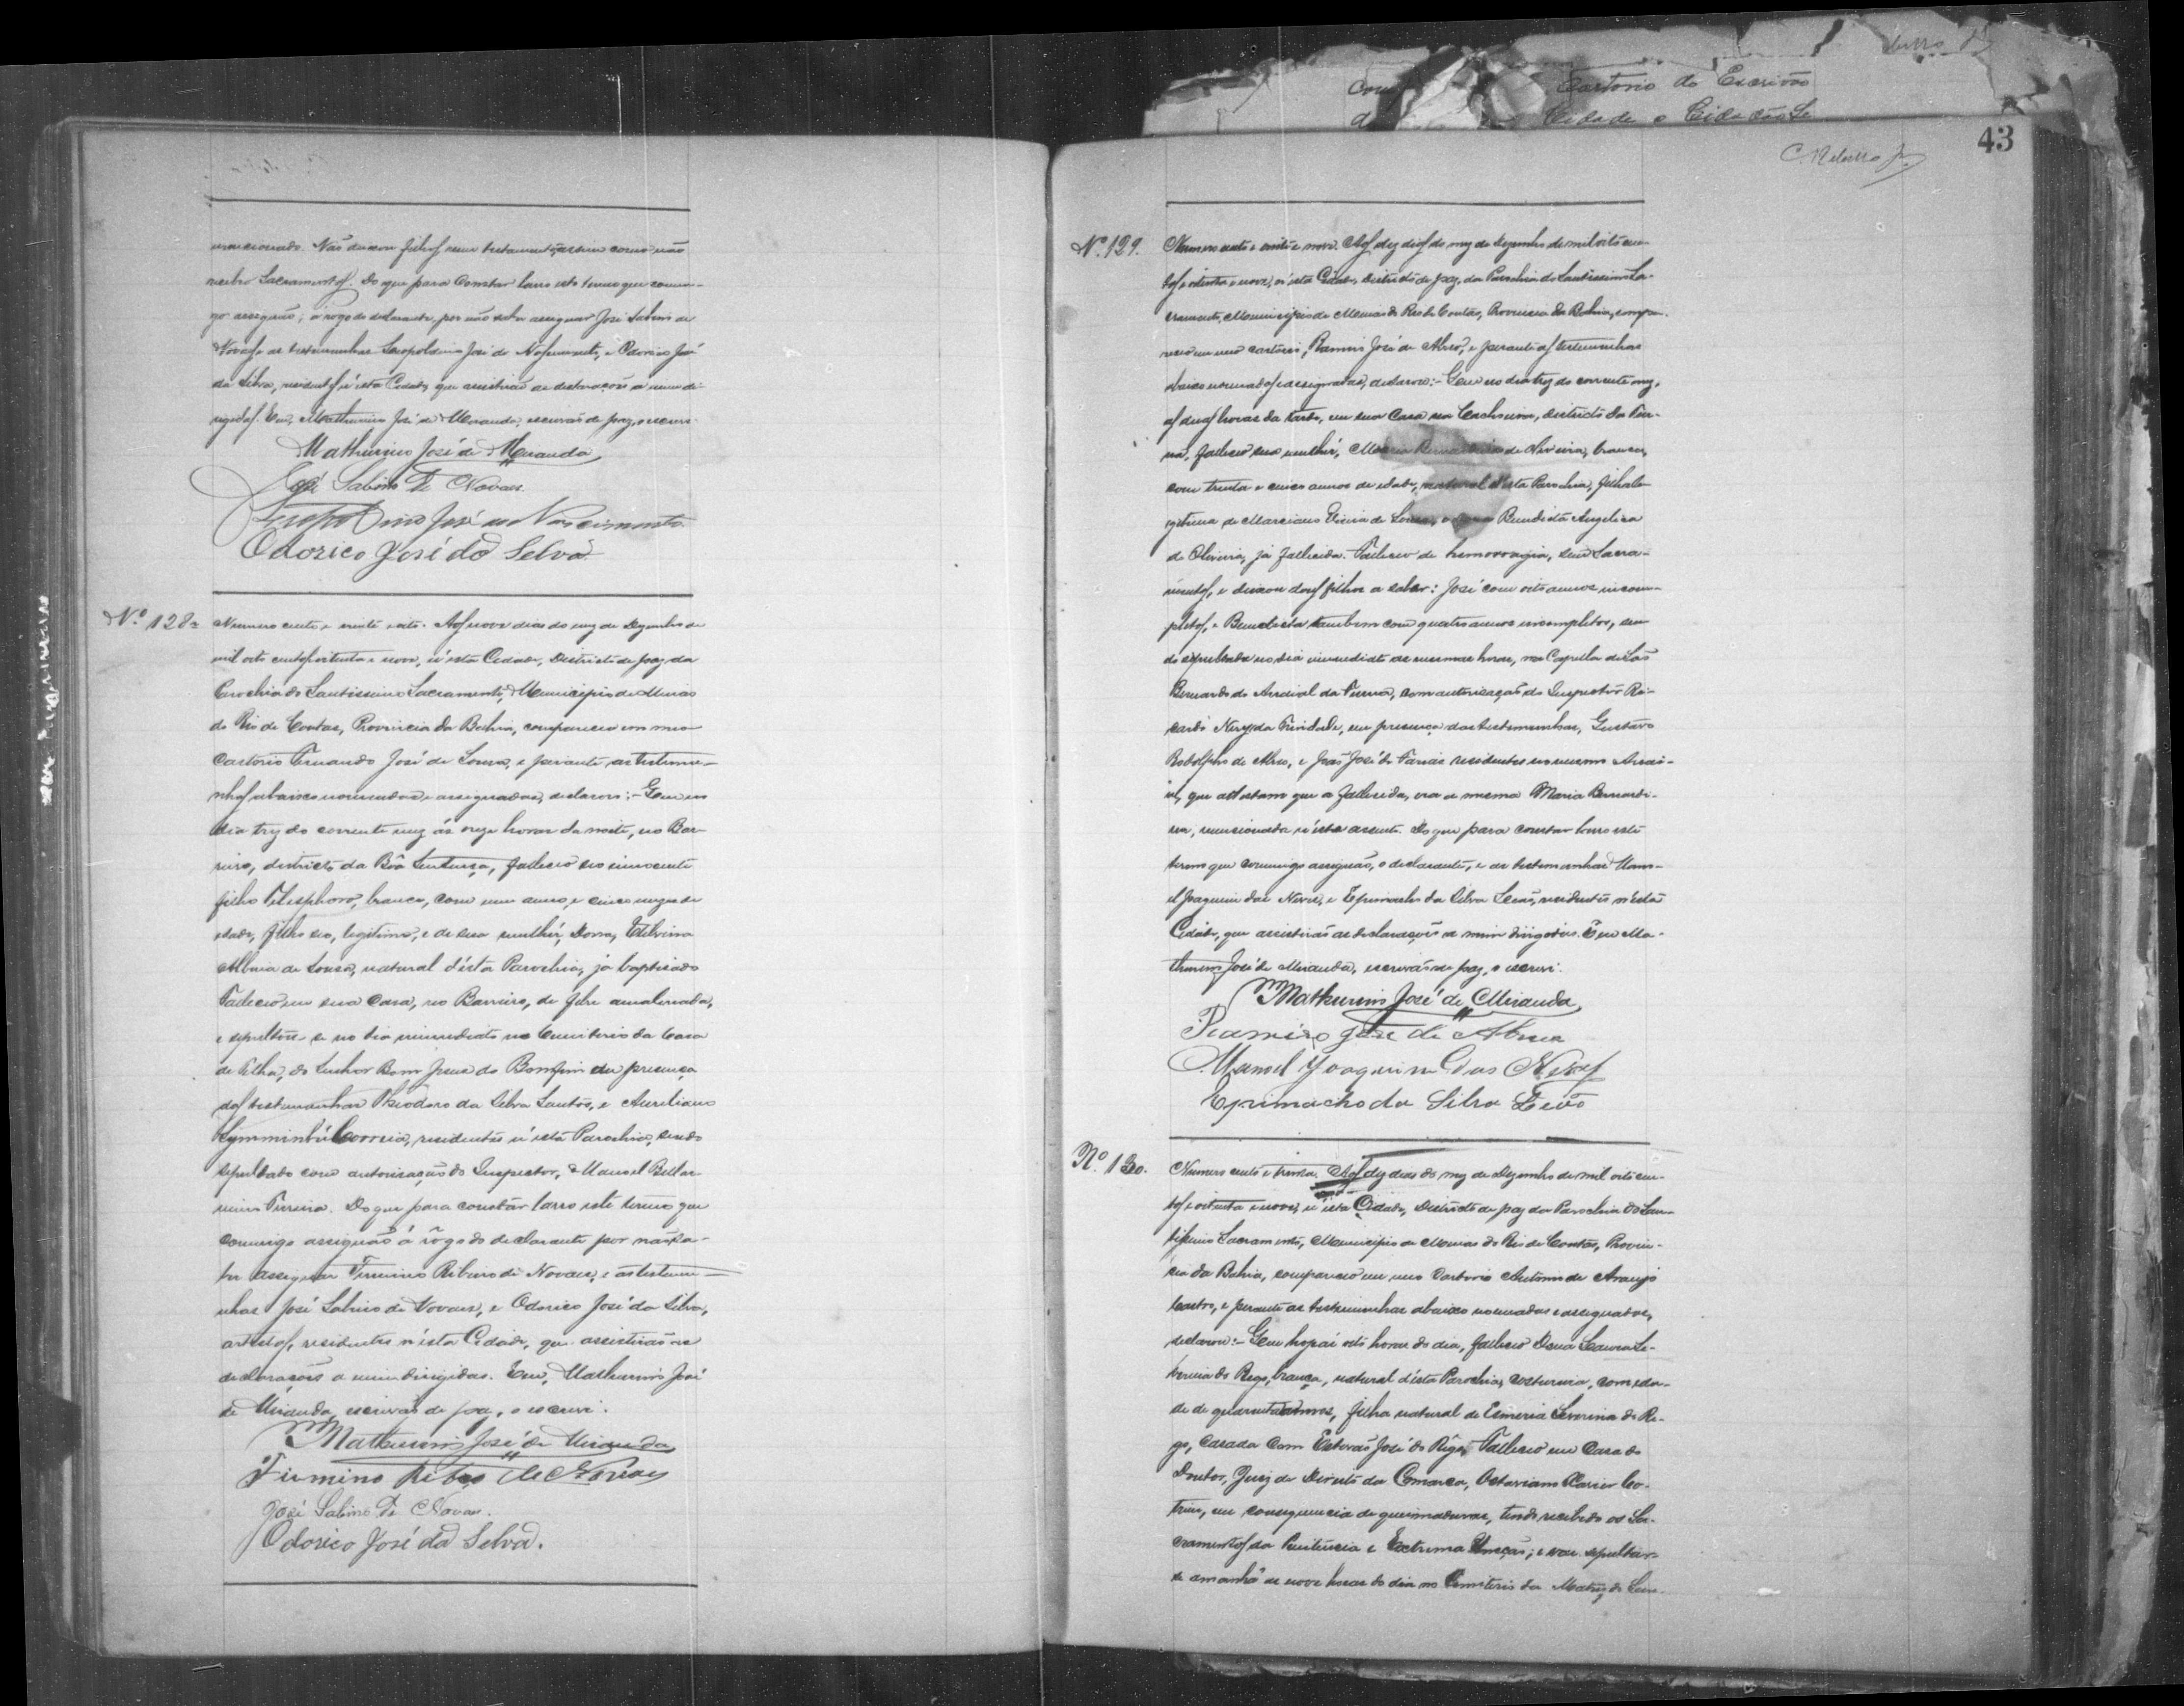 Cartorio do Escrivão
Cidade e Cidadão
43
mencionado. Não deixou filhos nem testamento, assim como não
recebeu Sacramentos. Do que para constar lavro este termo que comi-
go assignão, a rogo do declarante, por não saber assignar José Sabino de
Novaes e as testemunhas Leopoldino José do Nascimento, e Odorico José
da Silva, residentes n'esta Cidade, que assistirão as declarações a mim di-
rigidas. Eu, Mathurino José de Miranda, escrivão de paz, o escrevi.
Mathurino José de Miranda
José Sabino de Novaes.
Leopoldino José do Nascimento
Odorico José da Silva.
Nº 128.
Numero cento e vinte oito. Aos nove dias do mez de Dezembro de
mil oito centos oitenta e nove, n'esta Cidade, Districto de paz da
Parochia do Santissimo Sacramento, Municipio de Minas
do Rio de Contas, Provincia da Bahia, compareceu em meu
Cartorio Fernando José de Souza, e perante as testemu-
nhas abaixo nomeadas e assignadas, declarou: - Que no
dia trez do corrente mez ás onze horas da noite, no Bar-
reiro, districto da Bôa Sentença, falleceu seo innocente
filho Telesphoro, branco, com um anno e cinco mezes de
edade, filho seo, legitimo, e de sua mulhér, Dona, Etelvina
Albina de Souza, natural d'esta Parochia, já baptisado
Falleceu em sua casa, no Barreiro, de febre amalinada,
e sepultou-se no dia immediato no Cemiterio da Casa
de Telha, do Senhor Bom Jesus do Bomfim em presença
das testemunhas Theodoro da Silva Santos, e Aureliano
Correia, residentes n'esta Parochia, sendo
sepultado com autorisação do Inspector, Manoel Bellar-
mino Ferreira. Do que para constar lavro este termo que
comigo assignão á rôgo do declarante por não sa-
ber assignar Firmino Ribeiro de Novaes, e as testemu-
nhas José Sabino de Novaes, e Odorico José da Silva,
artistas, residentes n'esta Cidade, que assistirão as
declarações a mim dirigidas. Eu, Mathurino José
de Miranda, escrivão de paz, o escrevi.
Mathurino José de Miranda
Firmino Ribro de Novaes
José Sabino de Novaes.
Odorico José da Silva.
Nº 129.
Numero cento e vinte e nove. Aos dez dias do mez de Dezembro de mil oito cen-
tos e oitenta e nove, n'esta Cidade, Districto de paz, da Parochia do Santissimo Sa-
cramento, Municipio de Minas do Rio de Contas, Provincia da Bahia, compa-
receu em meo cartorio, Ramiro José de Abreo, e perante as testemunhas
abaixo nomeadas e assignadas, declarou: - Que no dia trez do corrente mez,
as duas horas da tarde, em sua Casa na Cachoeira, districto da Fur-
na, falleceu sua mulhér, Maria Bernardina de Oliveira, branca,
com trinta e cinco annos de edade, natural d'esta Parochia, filha le-
gitima de Marciano Vieira de Souza, e Dona Benedicta Angelica
de Oliveira, já fallecida. Falleceu de hemorragia, sem Sacra-
mentos, e deixou dous filhos a saber: José com oito annos incom-
pletos, e Benedicta tambem com quatro annos incompletos, sen-
do sepultada no dia immediato as mesmas horas, na Capella de São
Bernardo do Arraial da Furna, com autorisação do Inspector Ri-
cardo Nery da Trindade, em presença das testemunhas, Gustavo
Rodolpho de Abreo, e João José de Farias residentes no mesmo Arrai-
al, que attestam que a fallecida, era a mesma Maria Bernardi-
na, mencionada n'este assento. Do que para constar lavro este
termo que commigo assignão, o declarante, e as testemunhas Mano-
el Joaquim das Neves, e Epimacho da Silva Leão, residentes n'esta
Cidade, que assistirão as declarações a mim dirigidas. Eu Ma-
thurino José de Miranda, escrivão de paz, o escrevi.
Mathurino José de Miranda
Ramiro José de Abreu
Manoel Joaquim das Neves
Epimacho da Silva Leão
Nº 130.
Numero cento e trinta. Aos dez dias do mez de Dezembro de mil oito cen-
tos e oitenta e nove, n'esta Cidade, Districto de paz da Parochia do San-
tissimo Sacramento, Municipio de Minas do Rio de Contas, Provin-
cia da Bahia, compareceu em meo Cartorio Antonio de Araujo
Castro, e perante as testemunhas abaixo nomeadas e assignadas,
declarou: - Que hoje ás oito horas do dia, falleceo Dona Se-
verina do Rego, branca, natural d'esta Parochia, costureira, com eda-
de de quarenta annos, filha natural de Esmeria Severina do Re-
go, casada com Estevão José do Rêgo. Falleceo em Casa do
Doutor, Juiz de Direito da Comarca, Octaviano Xavier Co-
trim, em consequencia de queimaduras, tendo recebido os Sa-
cramentos da Penitencia e Extrema Uncção; e vae sepultar-
se amanhã as nove horas do dia no Cemiterio da Matriz do San-